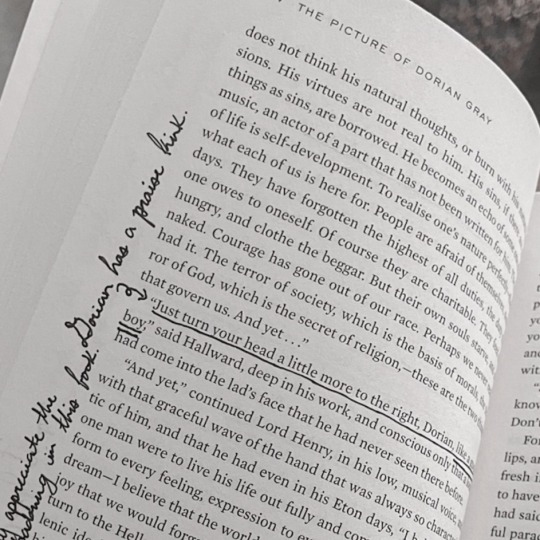 THE PICTURE OF DORIAN GRAY
does not think his natural thoughts, or burn with his
sions. His virtues are not real to him. His sins, if
things as sins, are borrowed. He becomes an echo of
music, an actor of a part that has not been written for
of life is self-development. To realise one's nature
what each of us is here for. People are afraid of
days. They have forgotten the highest of all duties, the
one owes to oneself. Of course they are charitable. They
hungry, and clothe the beggar. But their own souls starve
naked. Courage has gone out of our race. Perhaps we never
had it. The terror of society, which is the basis of morals, the
ror of God, which is the secret of religion,—these are the two
that govern us. And yet . . ."
"Just turn your head a little more to the right, Dorian, like
boy," said Hallward, deep in his work, and conscious only
had come into the lad's face that he had never seen there before.
"And yet," continued Lord Henry, in his low, musical voice,
with that graceful wave of the hand that was always so
tic of him, and that he had even in his Eton days,
one man were to live his life out fully and
form to every feeling, expression to
dream—I believe that the world
joy that we would
turn to the
lenic
appreciate the
in this book. Dorian has a praise kink.
know
Don't
lips,
fresh
to have
had said
ful